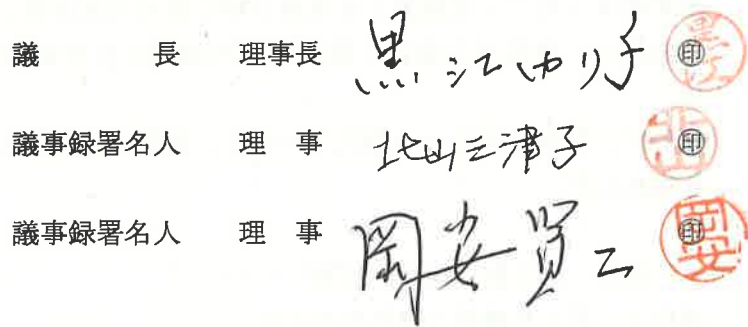 議長 理事長 黒江ゆり子 ㊞ 黒江
議事録署名人 理事 北山三津子 ㊞ 北山
議事録署名人 理事 岡安賢二 ㊞ 岡安